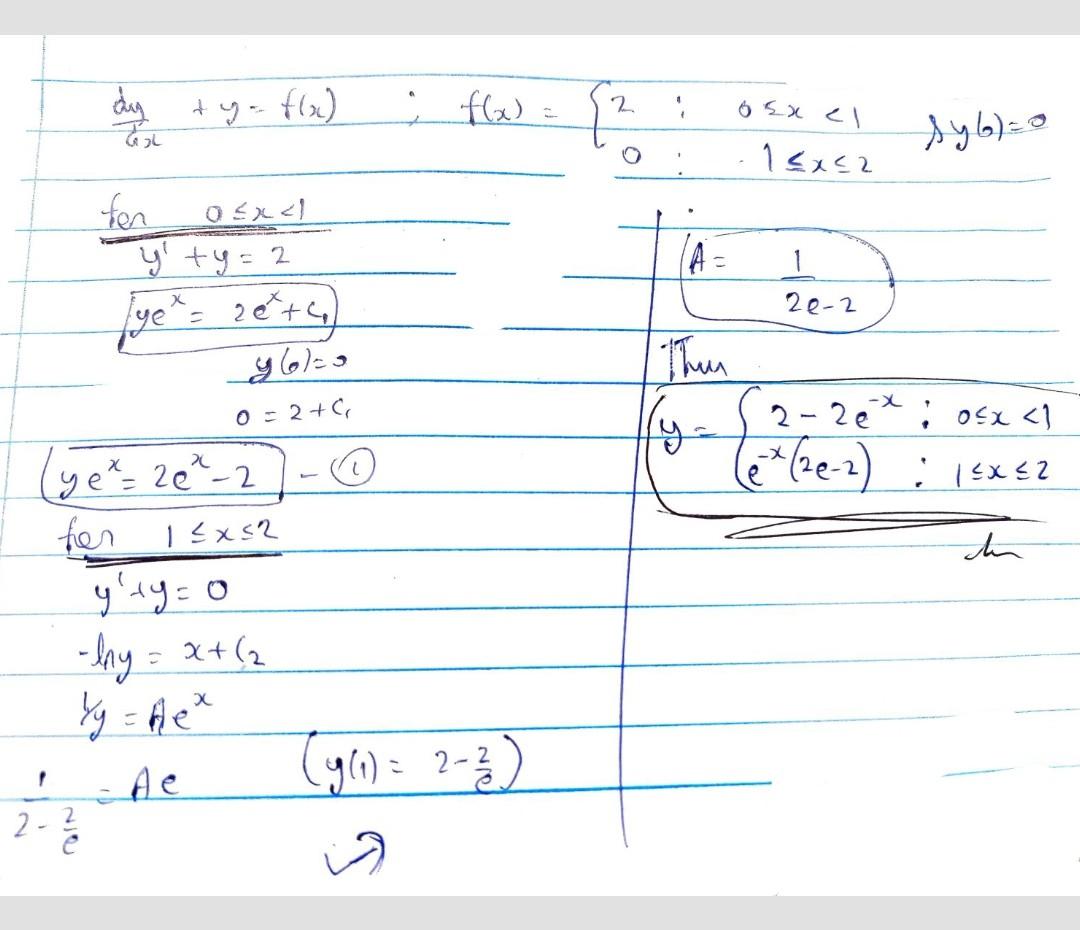 dy/dx + y = f(x) ; f(x) = { 2 ; 0 ≤ x < 1 & y(0) = 0
0 ; 1 ≤ x ≤ 2
for 0 ≤ x < 1
y' + y = 2
ye^x = 2e^x + C₁
y(0) = 0
0 = 2 + C₁
ye^x = 2e^x - 2 - ①
for 1 ≤ x ≤ 2
y' + y = 0
-lny = x + C₂
1/y = Ae^x
1/(2 - 2/e) = Ae (y(1) = 2 - 2/e)
A = 1/(2e-2)
Thus
y = { 2 - 2e^-x ; 0 ≤ x < 1
e^-x (2e-2) ; 1 ≤ x ≤ 2